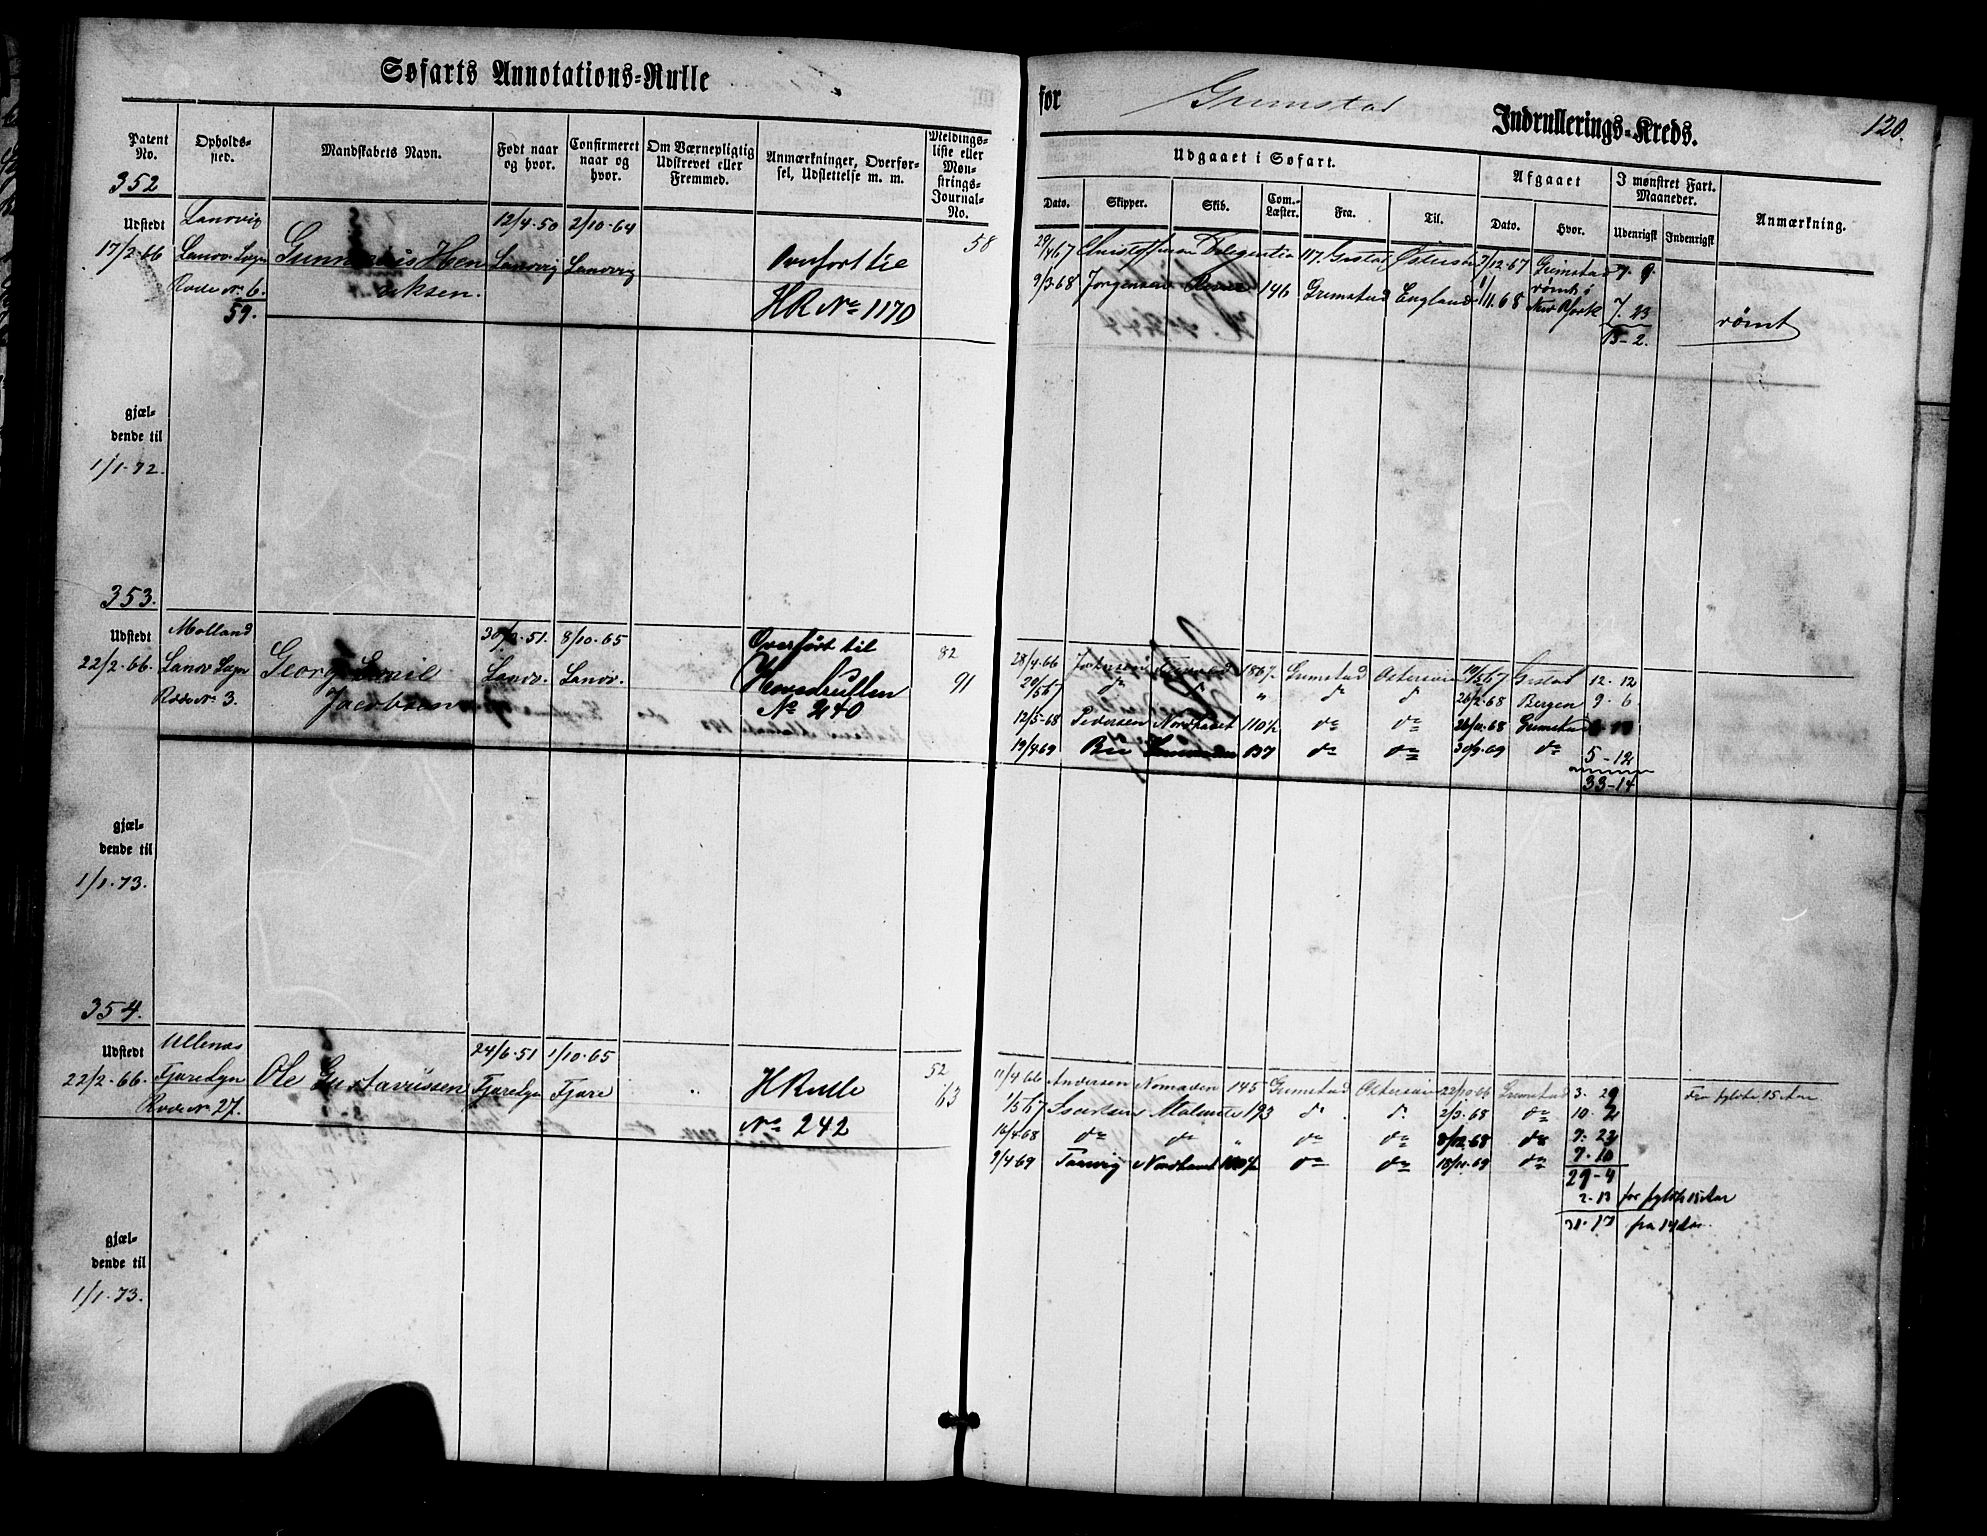 Søfarts Annotations-Rulle
for Grimstad Indrullerings-Kreds. 120.
Patent No.
Opholdssted.
Mandskabets Navn.
Født naar og hvor.
Confirmeret naar og hvor.
Om Værnepligtig Udskrevet eller Fremmed.
Anmærkninger, Overførsel, Udslettelse m. m.
Meldingsliste eller Mønstrings-Journal-No.
Udgaaet i Søfart.
Afgaaet
I mønstret Fart. Maaneder.
Anmærkning.
Dato. Skipper. Skib. Com.-Læster. Fra. Til. Dato. Hvor. Udenrigst Indenrigst
352
Udstedt
17/2-66
Landvig
Landv. Sogn
Rode No 6.
59.
Hen
riksen.
12/4-50
Landvig
2/10-64
Landvig
Overført til
HR No 1170
58
29/4 67 Christophersen 117. Grstad Østersø 7/12-67 Grimstad 7. 9.
9/3-68 Jørgensen 146 Grimstad England 1/11.68 rømt i New York 7. 23
15-2.
rømt
gjæl-
dende til
1/1-72.
353.
Udstedt
22/2-66.
Molland
Landv Sogn
Rode No 3.
Georg Emil
Jacobsen
Landv.
8/10-65
Landv.
Overført til
Hovedrullen
No 240
82
91
28/4-66 Grimstad Østersøen Grstad 12-12
do " do do 26/2-68 Bergen 9-6
12/5-68 Pedersen Nordhavet 110½ do do 26/11-68 Grimstad
19/4 69 137 do do 30/9-69 do 5-12
33-14
gjæl-
dende til
1/1-73.
354.
Udstedt
22/2-66.
Ullenæs
Fjære Sgn
Rode No 27.
Ole Gustavussen
24/6-51
Fjære Sgn
1/10-65
Fjære
"
HRulle
No 242
52
63
11/4 66 Andersen Nomaden 145 Grimstad Østersøen 22/10-66 Grimstad 3. 29
1/5 67 Isaksen 193 do. do. 2/3-68 do 10. 2
16/4 68 do do " do do 8/12-68 do 7. 23
9/4 69 Nordhavet do do 18/11-69 do 7. 10
29-4
2-13 før fyldte 15 Aar
31-17 fra 14 Aar.
Fra fyldte 15 Aar
gjæl-
dende til
1/1-73.